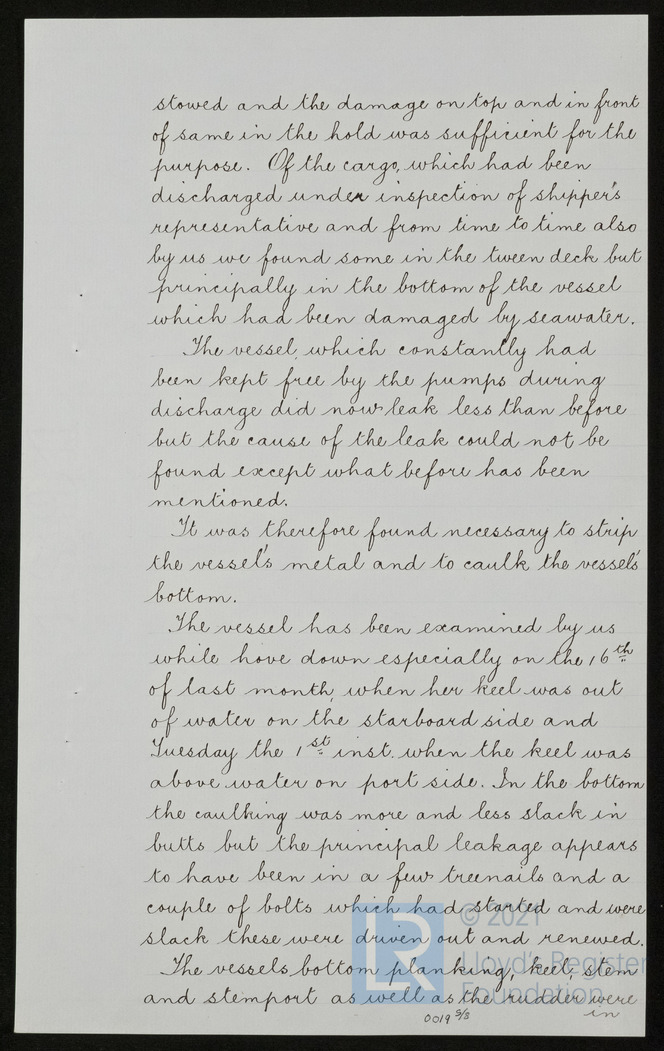 stowed and the damage on top and in front
of same in the hold was sufficient for the
purpose. Of the cargo, which had been
discharged under inspection of shipper's
representative and from time to time also
by us we found some in the tween deck but
principally in the bottom of the vessel
which had been damaged by seawater.
The vessel, which constantly had
been kept free by the pumps during
discharge did now leak less than before
but the cause of the leak could not be
found except what before has been
mentioned.
It was therefore found necessary to strip
the vessel's metal and to caulk the vessel's
bottom.
The vessel has been examined by us
while hove down especially on the 16th
of last month, when her keel was out
of water on the starboard side and
Tuesday the 1st inst. when the keel was
above water on port side. In the bottom
the caulking was more and less slack in
butts but the principal leakage appears
to have been in a few treenails and a
couple of bolts which had started and were
slack these were driven out and renewed.
The vessels bottom planking, keel, stem
and stemport as well as the rudder were
in
0019 5/8
LR
© 2021
Lloyd's Register
Foundation